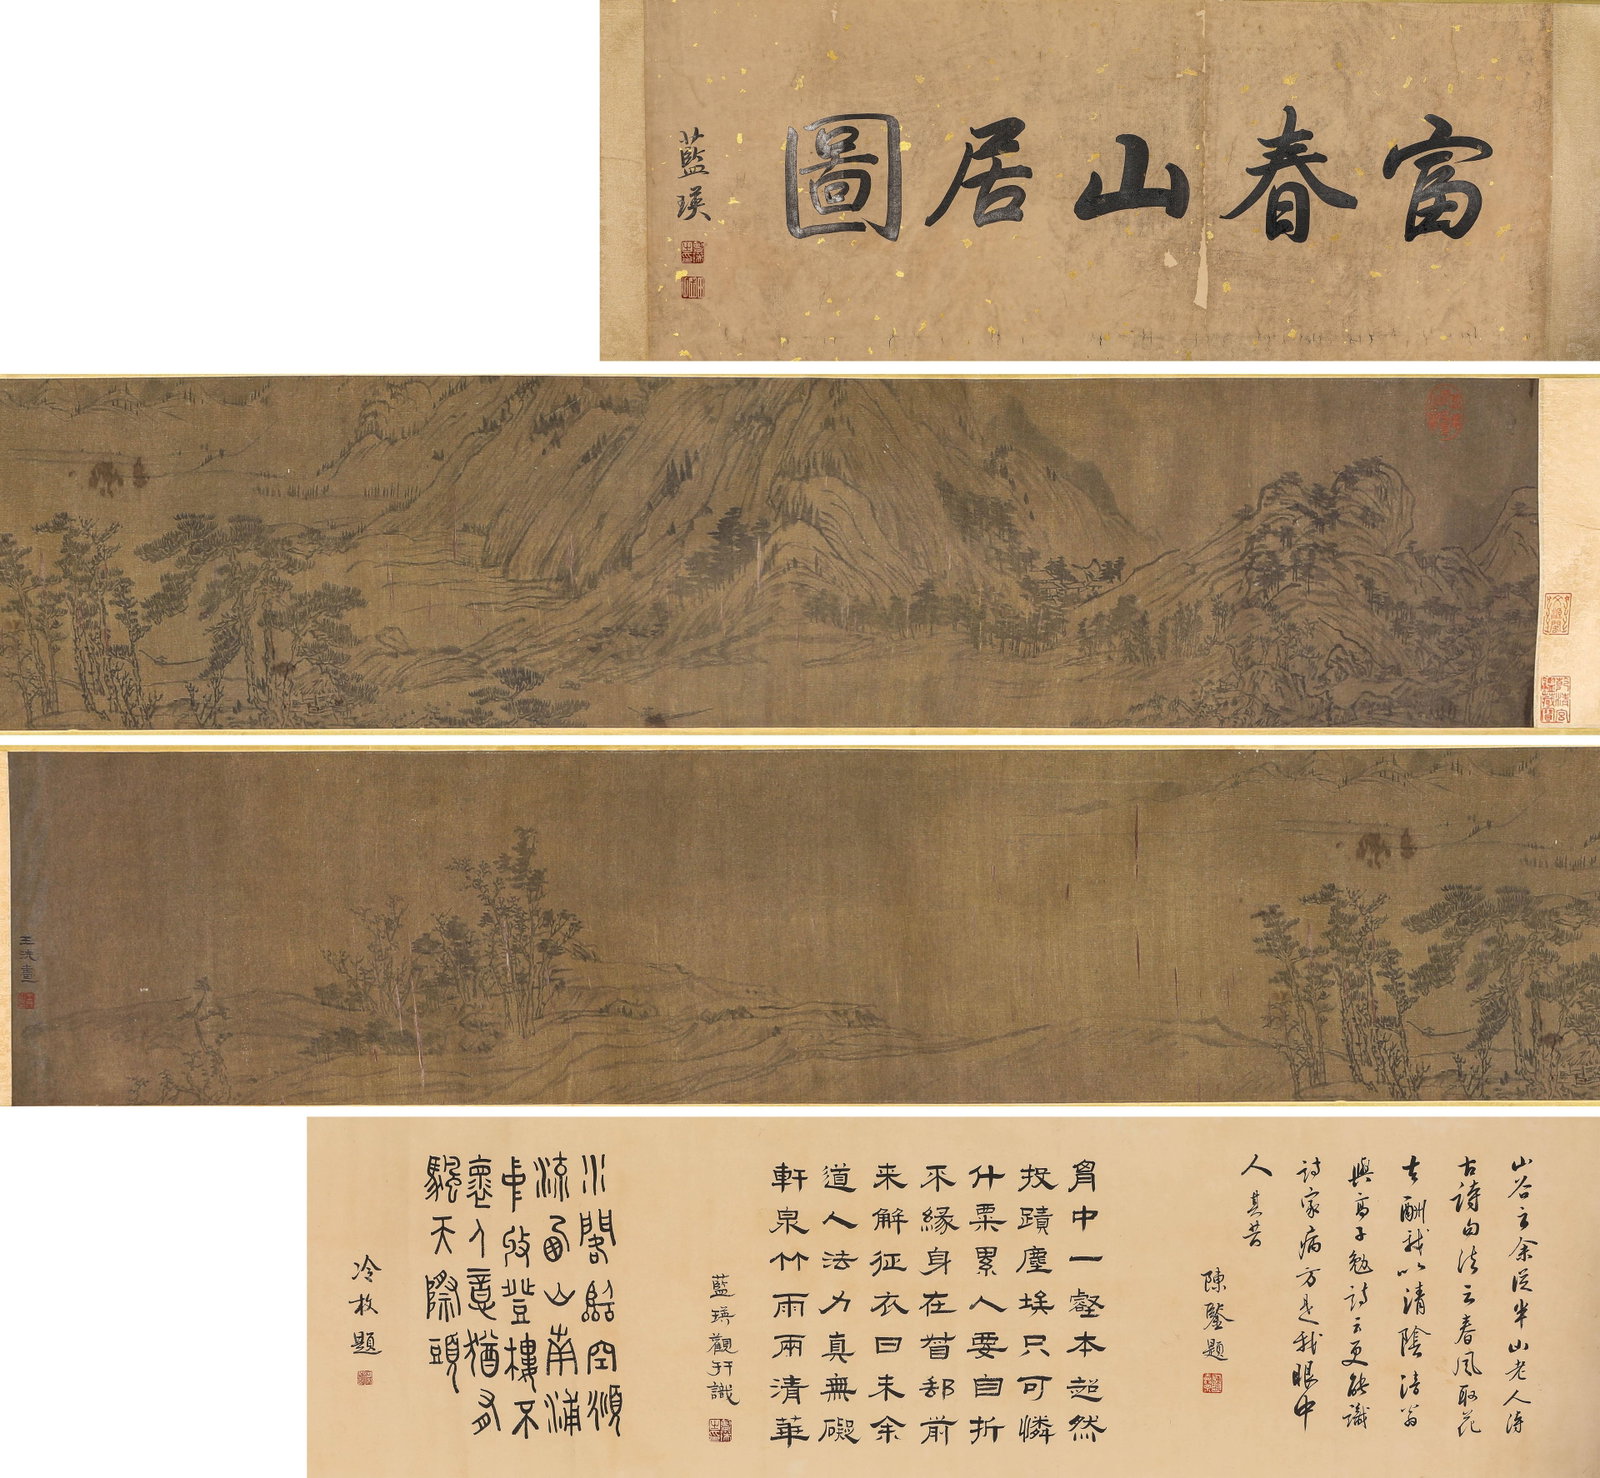 富春山居圖
藍瑛
乾清宮
鑑藏寶
王洗畫
山谷云余從半山老人得
古詩句法云春風取花
去酬我以清陰後嘗
與高子勉詩云更能識
詩家病方是我眼中
人 其昔
陳鑒題
胷中一壑本超然
投蹟塵埃只可憐
斗粟累人要自折
不緣身在督郵前
来解征衣日未余
道人法力真無礙
軒泉竹雨兩清華
藍瑛觀并識
閣臨空
流西山南浦
登樓不
懷人意猶有
天際頭
冷枚題